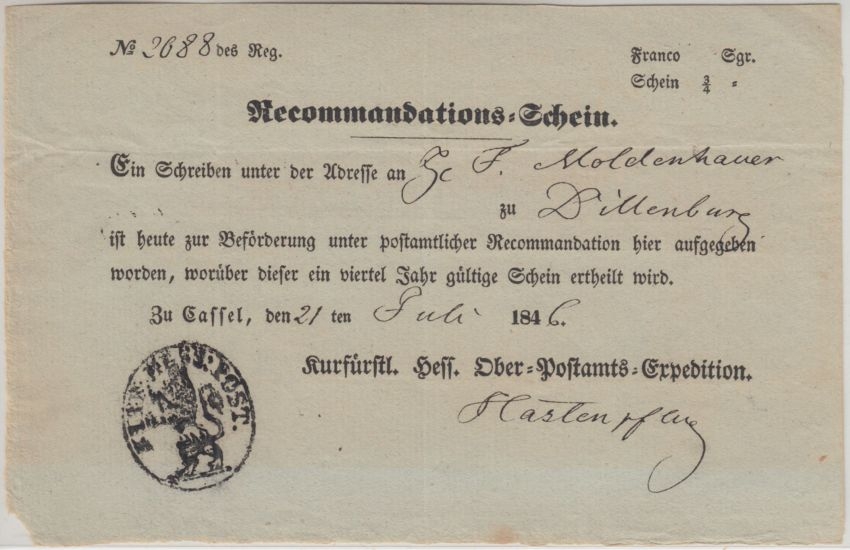 № 2688 des Reg.
Franco Sgr.
Schein ¾ "
Recommandations-Schein.
Ein Schreiben unter der Adresse an F. Moldenhauer
zu Dillenburg
ist heute zur Beförderung unter postamtlicher Recommandation hier aufgegeben
worden, worüber dieser ein viertel Jahr gültige Schein ertheilt wird.
Zu Cassel, den 21 ten Juli 1846.
Kurfürstl. Hess. Ober-Postamts-Expedition.
Hastenpflug
POST.